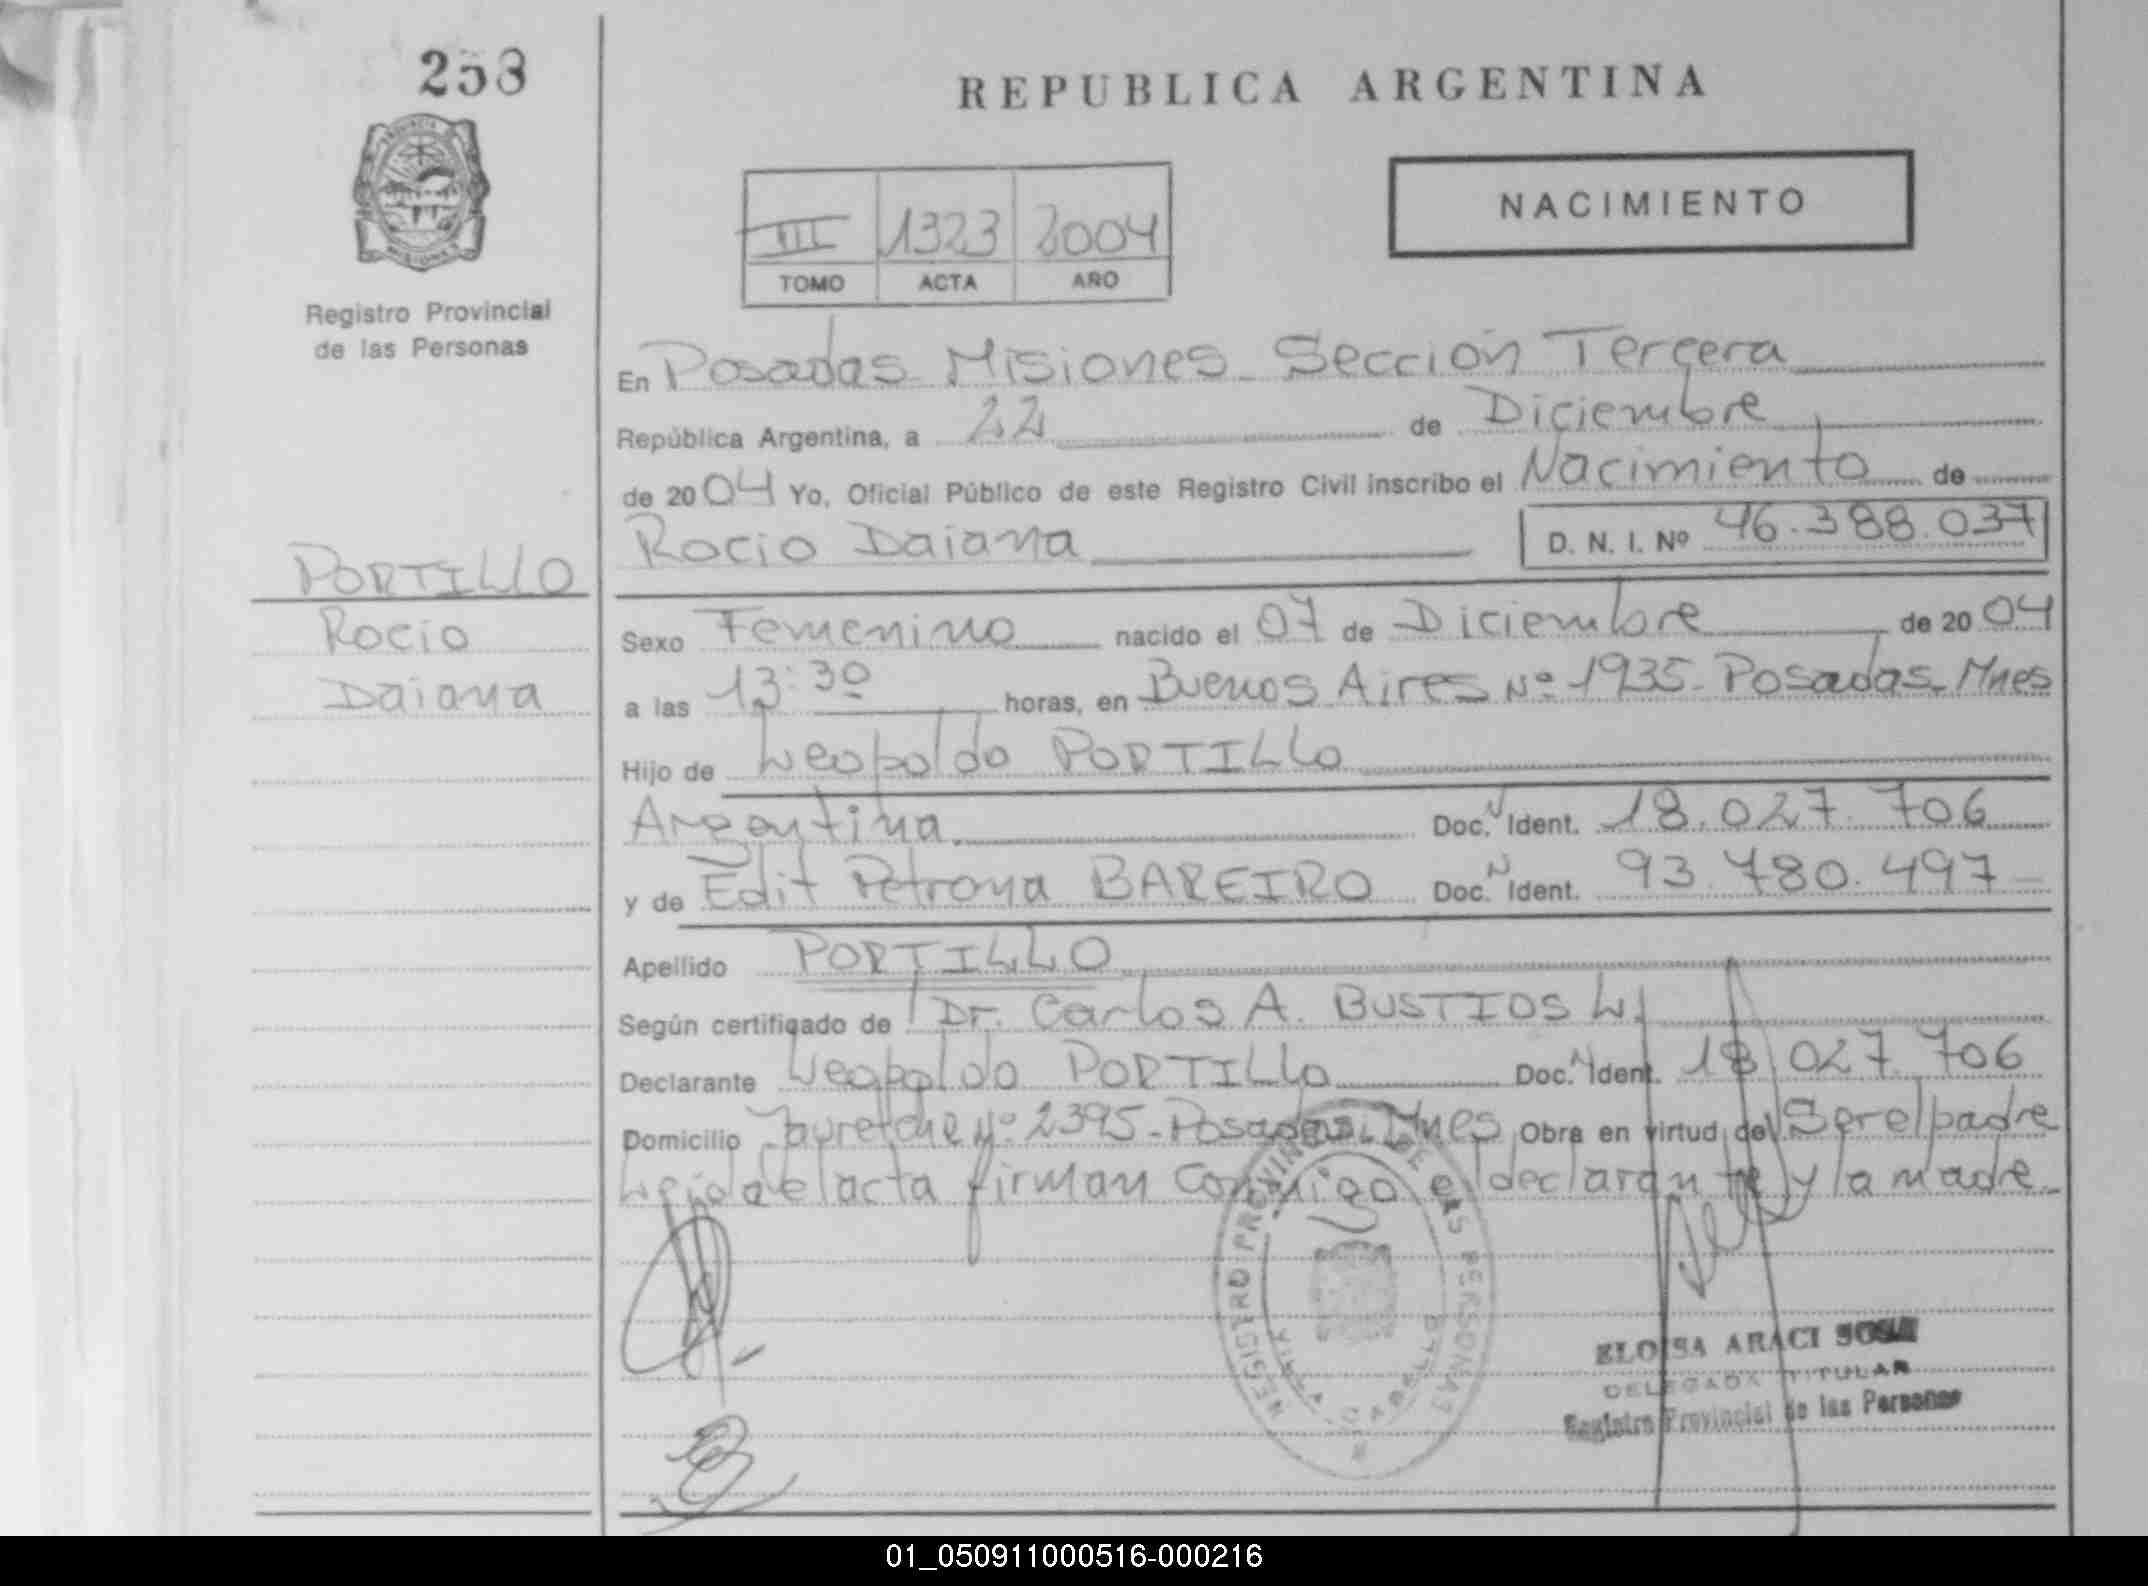 258
REPUBLICA ARGENTINA
NACIMIENTO
III 1323 2004
TOMO ACTA AÑO
PROVINCIA DE
MISIONES
Registro Provincial
de las Personas
En Posadas Misiones Sección Tercera
República Argentina, a 22 de Diciembre
de 2004 Yo, Oficial Público de este Registro Civil inscribo el Nacimiento de
Rocio Daiana D. N. I. Nº 46.388.037
PORTILLO
Rocio
Daiana
Sexo Femenino nacido el 07 de Diciembre de 2004
a las 13:30 horas, en Buenos Aires Nº 1935 - Posadas - Mnes
Hijo de Leopoldo PORTILLO
Argentina Doc. N Ident. 18.027.706
y de Edit Petrona BAREIRO Doc. N Ident. 93.780.497
Apellido PORTILLO
Según certificado de Dr. Carlos A. BUSTIOS L.
Declarante Leopoldo PORTILLO Doc. N Ident. 18.027.706
Domicilio Jauretche Nº 2395 - Posadas - Mnes Obra en virtud de Ser el padre
Leida el acta firman conmigo el declarante y la madre
REGISTRO PROVINCIAL DE LAS PERSONAS
VILLA CABELLO
ELOISA ARACI
DELEGADA TITULAR
Registro Provincial de las Personas
01_050911000516-000216